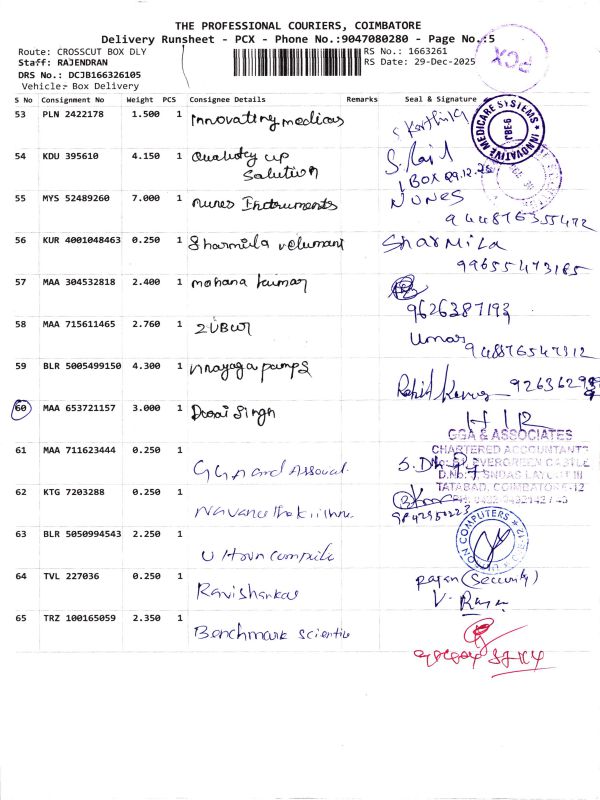 THE PROFESSIONAL COURIERS, COIMBATORE
Delivery Runsheet - PCX - Phone No.:9047080280 - Page No.:5
Route: CROSSCUT BOX DLY
RS No.: 1663261
Staff: RAJENDRAN
RS Date: 29-Dec-2025
DRS No.: DCJB166326105
Vehicle:- Box Delivery
PCX
S No Consignment No Weight PCS Consignee Details Remarks Seal & Signature
53 PLN 2422178 1.500 1 Innovating medicas S Karthika
INNOVATIVE MEDICARE SYSTEMS CBE-6
54 KDU 395610 4.150 1 Quality up
Salution
1 BOX 29.12.25
55 MYS 52489260 7.000 1 nunes Instruments NUNES
9448765
56 KUR 4001048463 0.250 1 Sharmila velumani SharMila
57 MAA 304532818 2.400 1 mohana kumar
9626387193
58 MAA 715611465 2.760 1 Umar
59 BLR 5005499150 4.300 1 vnayaga pumps Rohit Kumar
60 MAA 653721157 3.000 1 Durai Singh
GGA & ASSOCIATES
CHARTERED ACCOUNTANTS
EVERGREEN CASTLE
TATABAD, COIMBATORE-12
61 MAA 711623444 0.250 1 GGA and Assocat.
62 KTG 7203288 0.250 1
9842950223
63 BLR 5050994543 2.250 1
ON COMPUTERS
64 TVL 227036 0.250 1 Ravishankar rajan (Security)
V. Rajan
65 TRZ 100165059 2.350 1 Benchmark scientific